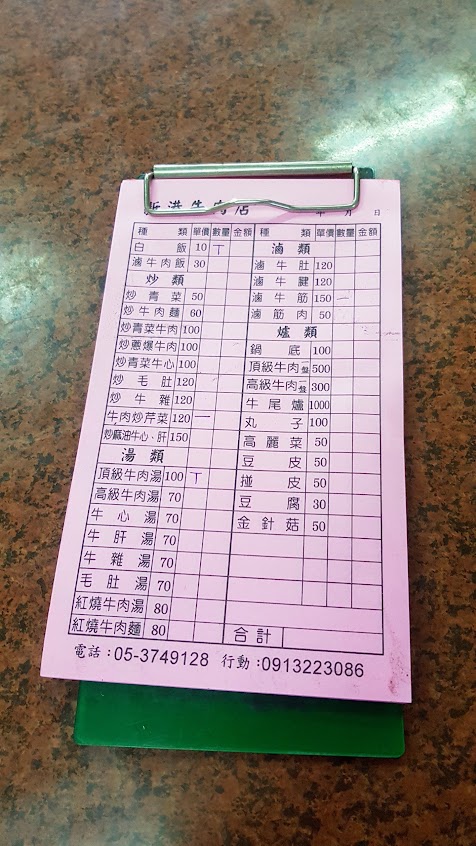 新港牛肉店 年 月 日
種類 單價 數量 金額
白飯 10 T
滷牛肉飯 30
炒類
炒青菜 50
炒牛肉麵 60
炒青菜牛肉 100
炒蔥爆牛肉 100
炒青菜牛心 100
炒毛肚 120
炒牛雜 120
牛肉炒芹菜 120 一
炒麻油牛心、肝 150
湯類
頂級牛肉湯 100 T
高級牛肉湯 70
牛心湯 70
牛肝湯 70
牛雜湯 70
毛肚湯 70
紅燒牛肉湯 80
紅燒牛肉麵 80
種類 單價 數量 金額
滷類
滷牛肚 120
滷牛腱 120
滷牛筋 150 一
滷筋肉 50
爐類
鍋底 100
頂級牛肉一盤 500
高級牛肉一盤 300
牛尾爐 1000
丸子 100
高麗菜 50
豆皮 50
掽皮 50
豆腐 30
金針菇 50
合計
電話:05-3749128 行動:0913223086